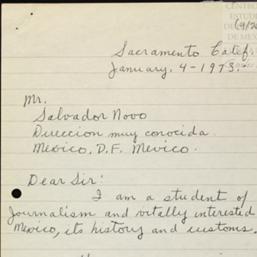 CENTRO
ESTUD
DE MEX
Sacramento Calif.
January, 4-1973.
Mr.
Salvador Novo
Direccion muy conocida
Mexico, D.F. Mexico.
Dear Sir:
I am a student of
Journalism and vitally interested
Mexico, its history and customs.